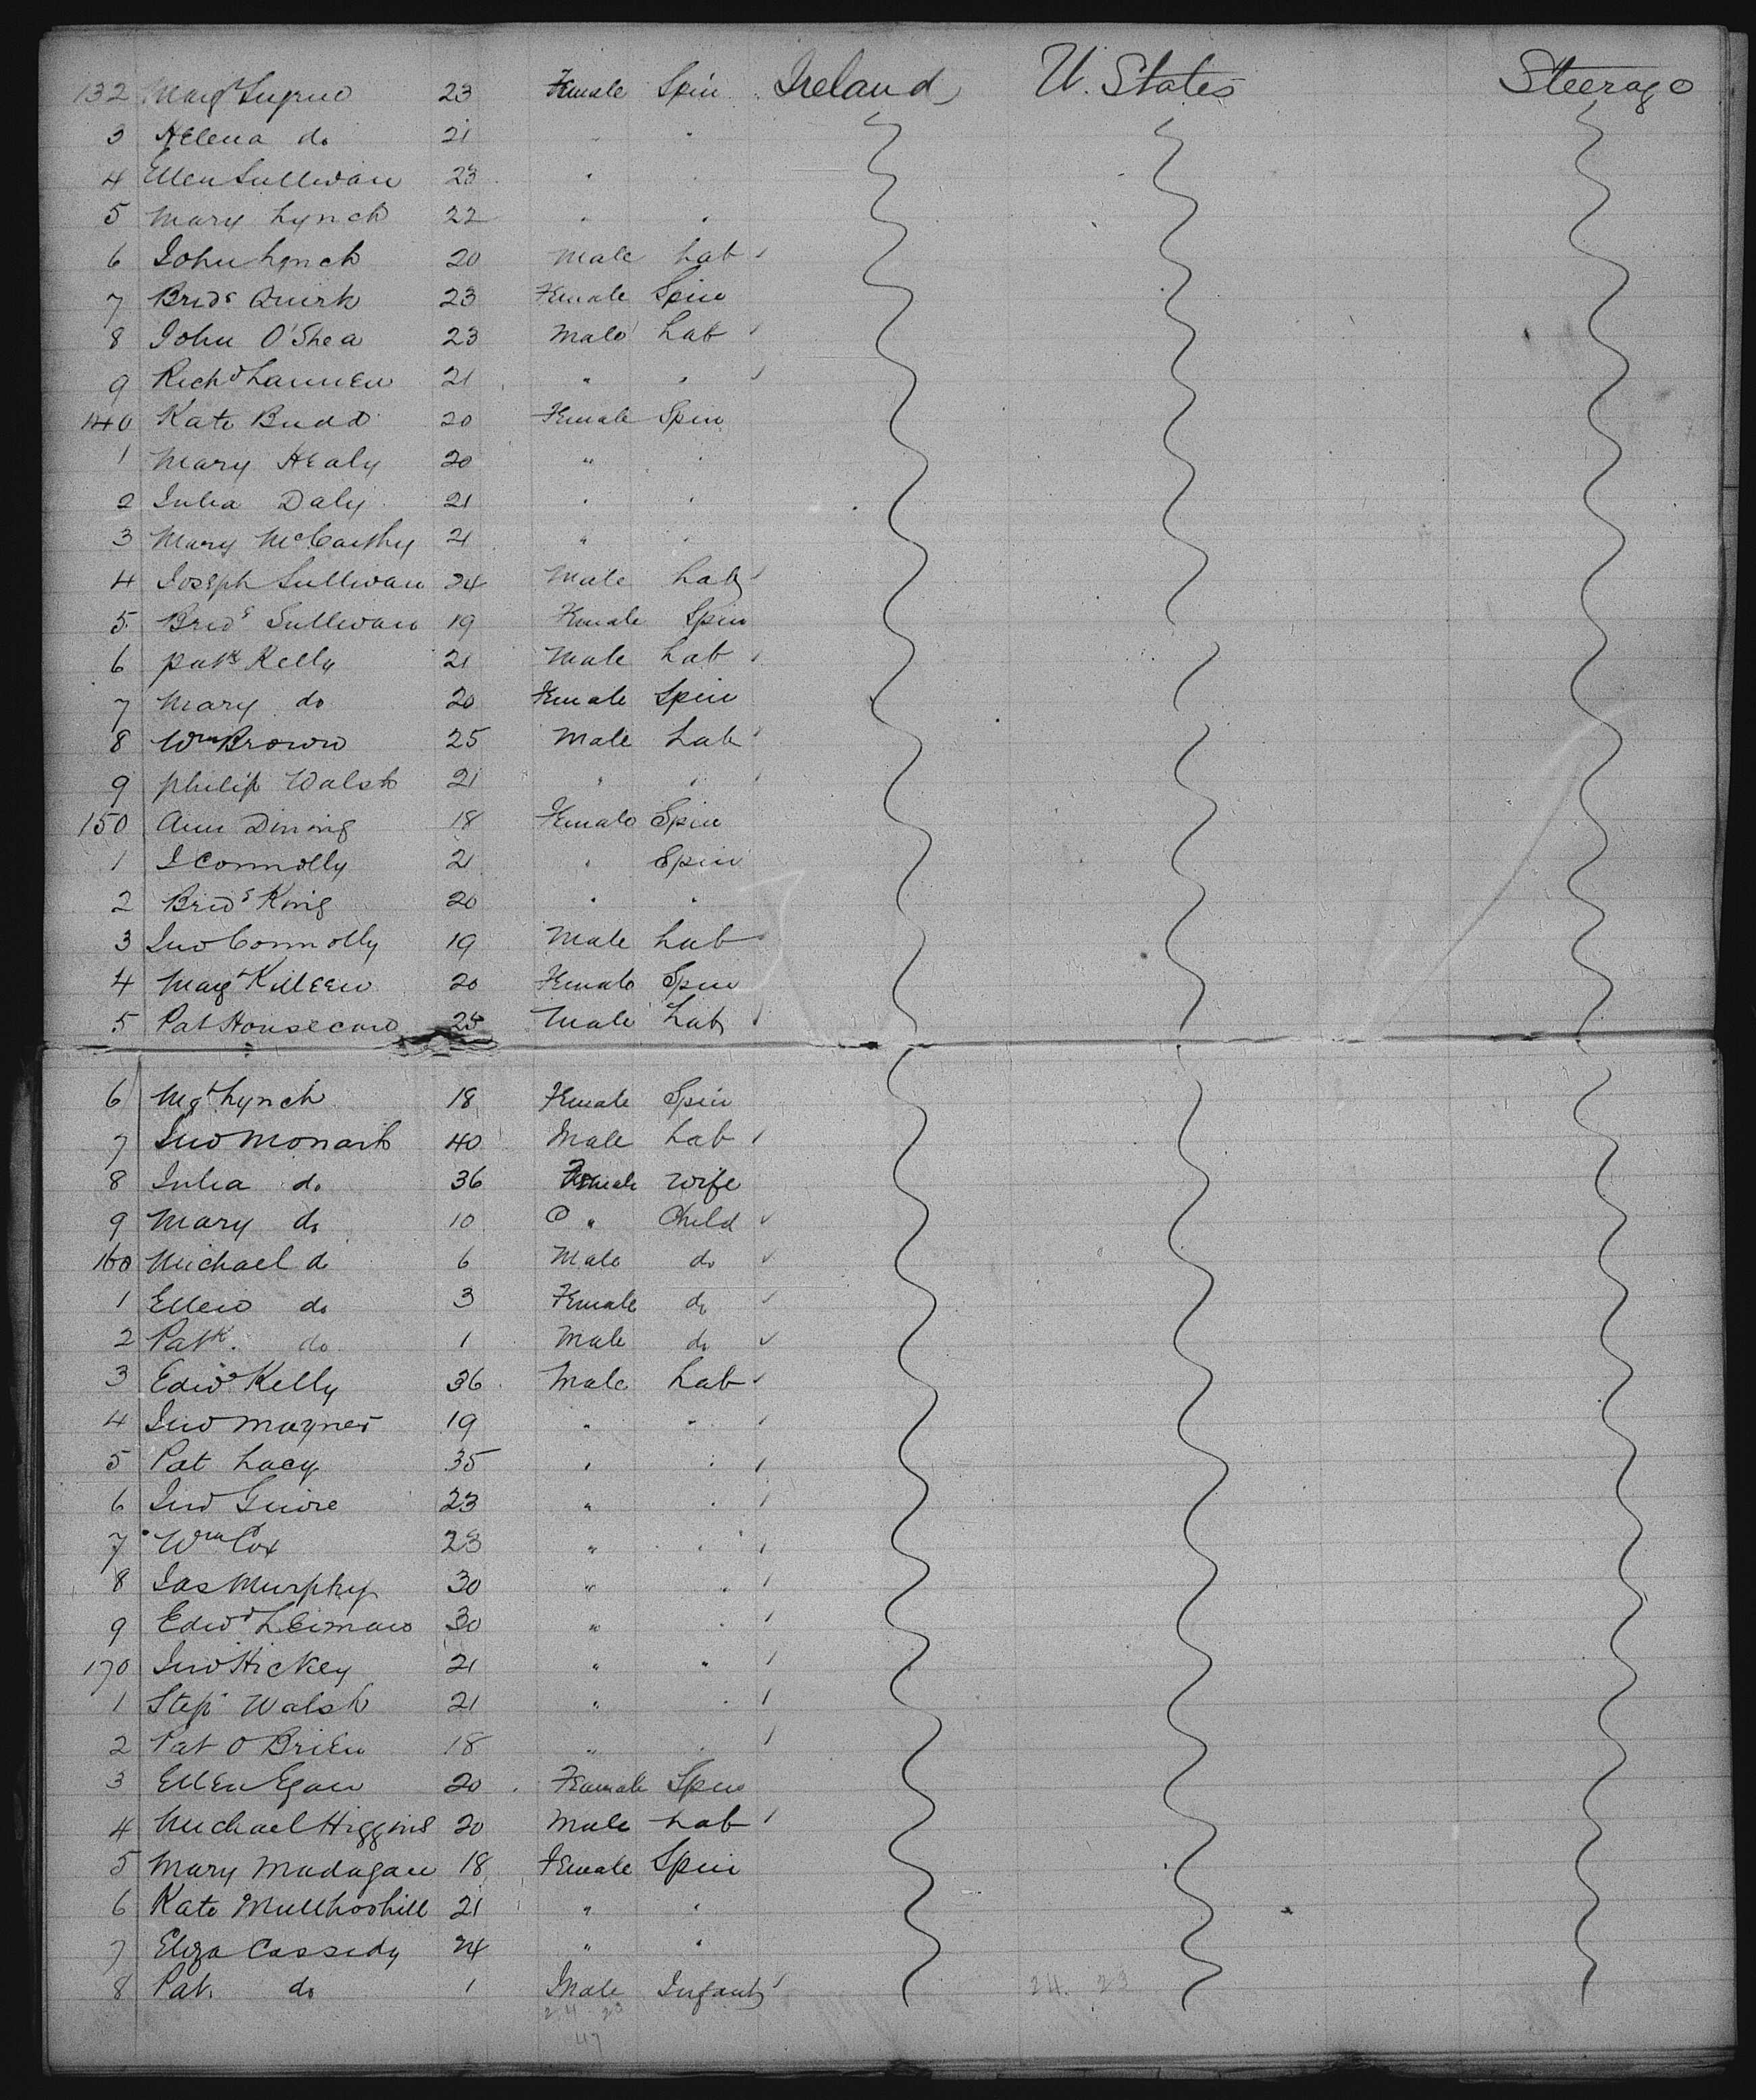 132 Margt Sugrue 23 Female Spin Ireland U. States Steerage
3 Helena do 21 " "
4 Ellen Sullivan 23 " "
5 Mary Lynch 22 " "
6 John Lynch 20 Male Lab
7 Bridt Quirk 23 Female Spin
8 John O'Shea 23 Male Lab
9 Richd Lannen 21 " "
140 Kate Budd 20 Female Spin
1 Mary Healy 20 " "
2 Julia Daly 21 " "
3 Mary McCarthy 21 " "
4 Joseph Sullivan 24 Male Lab
5 Bridt Sullivan 19 Female Spin
6 Patk Kelly 21 Male Lab
7 Mary do 20 Female Spin
8 Wm Brown 25 Male Lab
9 Philip Walsh 21 " "
150 Ann Dining 18 Female Spin
1 J Connolly 21 " Spin
2 Bridt King 20 " "
3 Jno Connolly 19 Male Lab
4 Margt Killeen 20 Female Spin
5 Pat 25 Male Lab
6 Mgt Lynch 18 Female Spin
7 Jno Monark 40 Male Lab
8 Julia do 36 Female Wife
9 Mary do 10 " Child
160 Michael do 6 Male do
1 Ellen do 3 Female do
2 Patk. do 1 Male do
3 Edwd Kelly 36 Male Lab
4 Jno Magner 19 " "
5 Pat Lacy 35 " "
6 Jno Guire 23 " "
7 Wm Cox 23 " "
8 Jas Murphy 30 " "
9 Edwd 30 " "
170 Jno Hickey 21 " "
1 Stepn Walsh 21 " "
2 Pat O Brien 18 " "
3 Ellen Egan 20 Female Spin
4 Michael Higgins 20 Male Lab
5 Mary Madagan 18 Female Spin
6 Kate Mullhoohill 21 " "
7 Eliza Cassidy 24 " "
8 Pat. do 1 Male Infant
24 23 24. 23
47